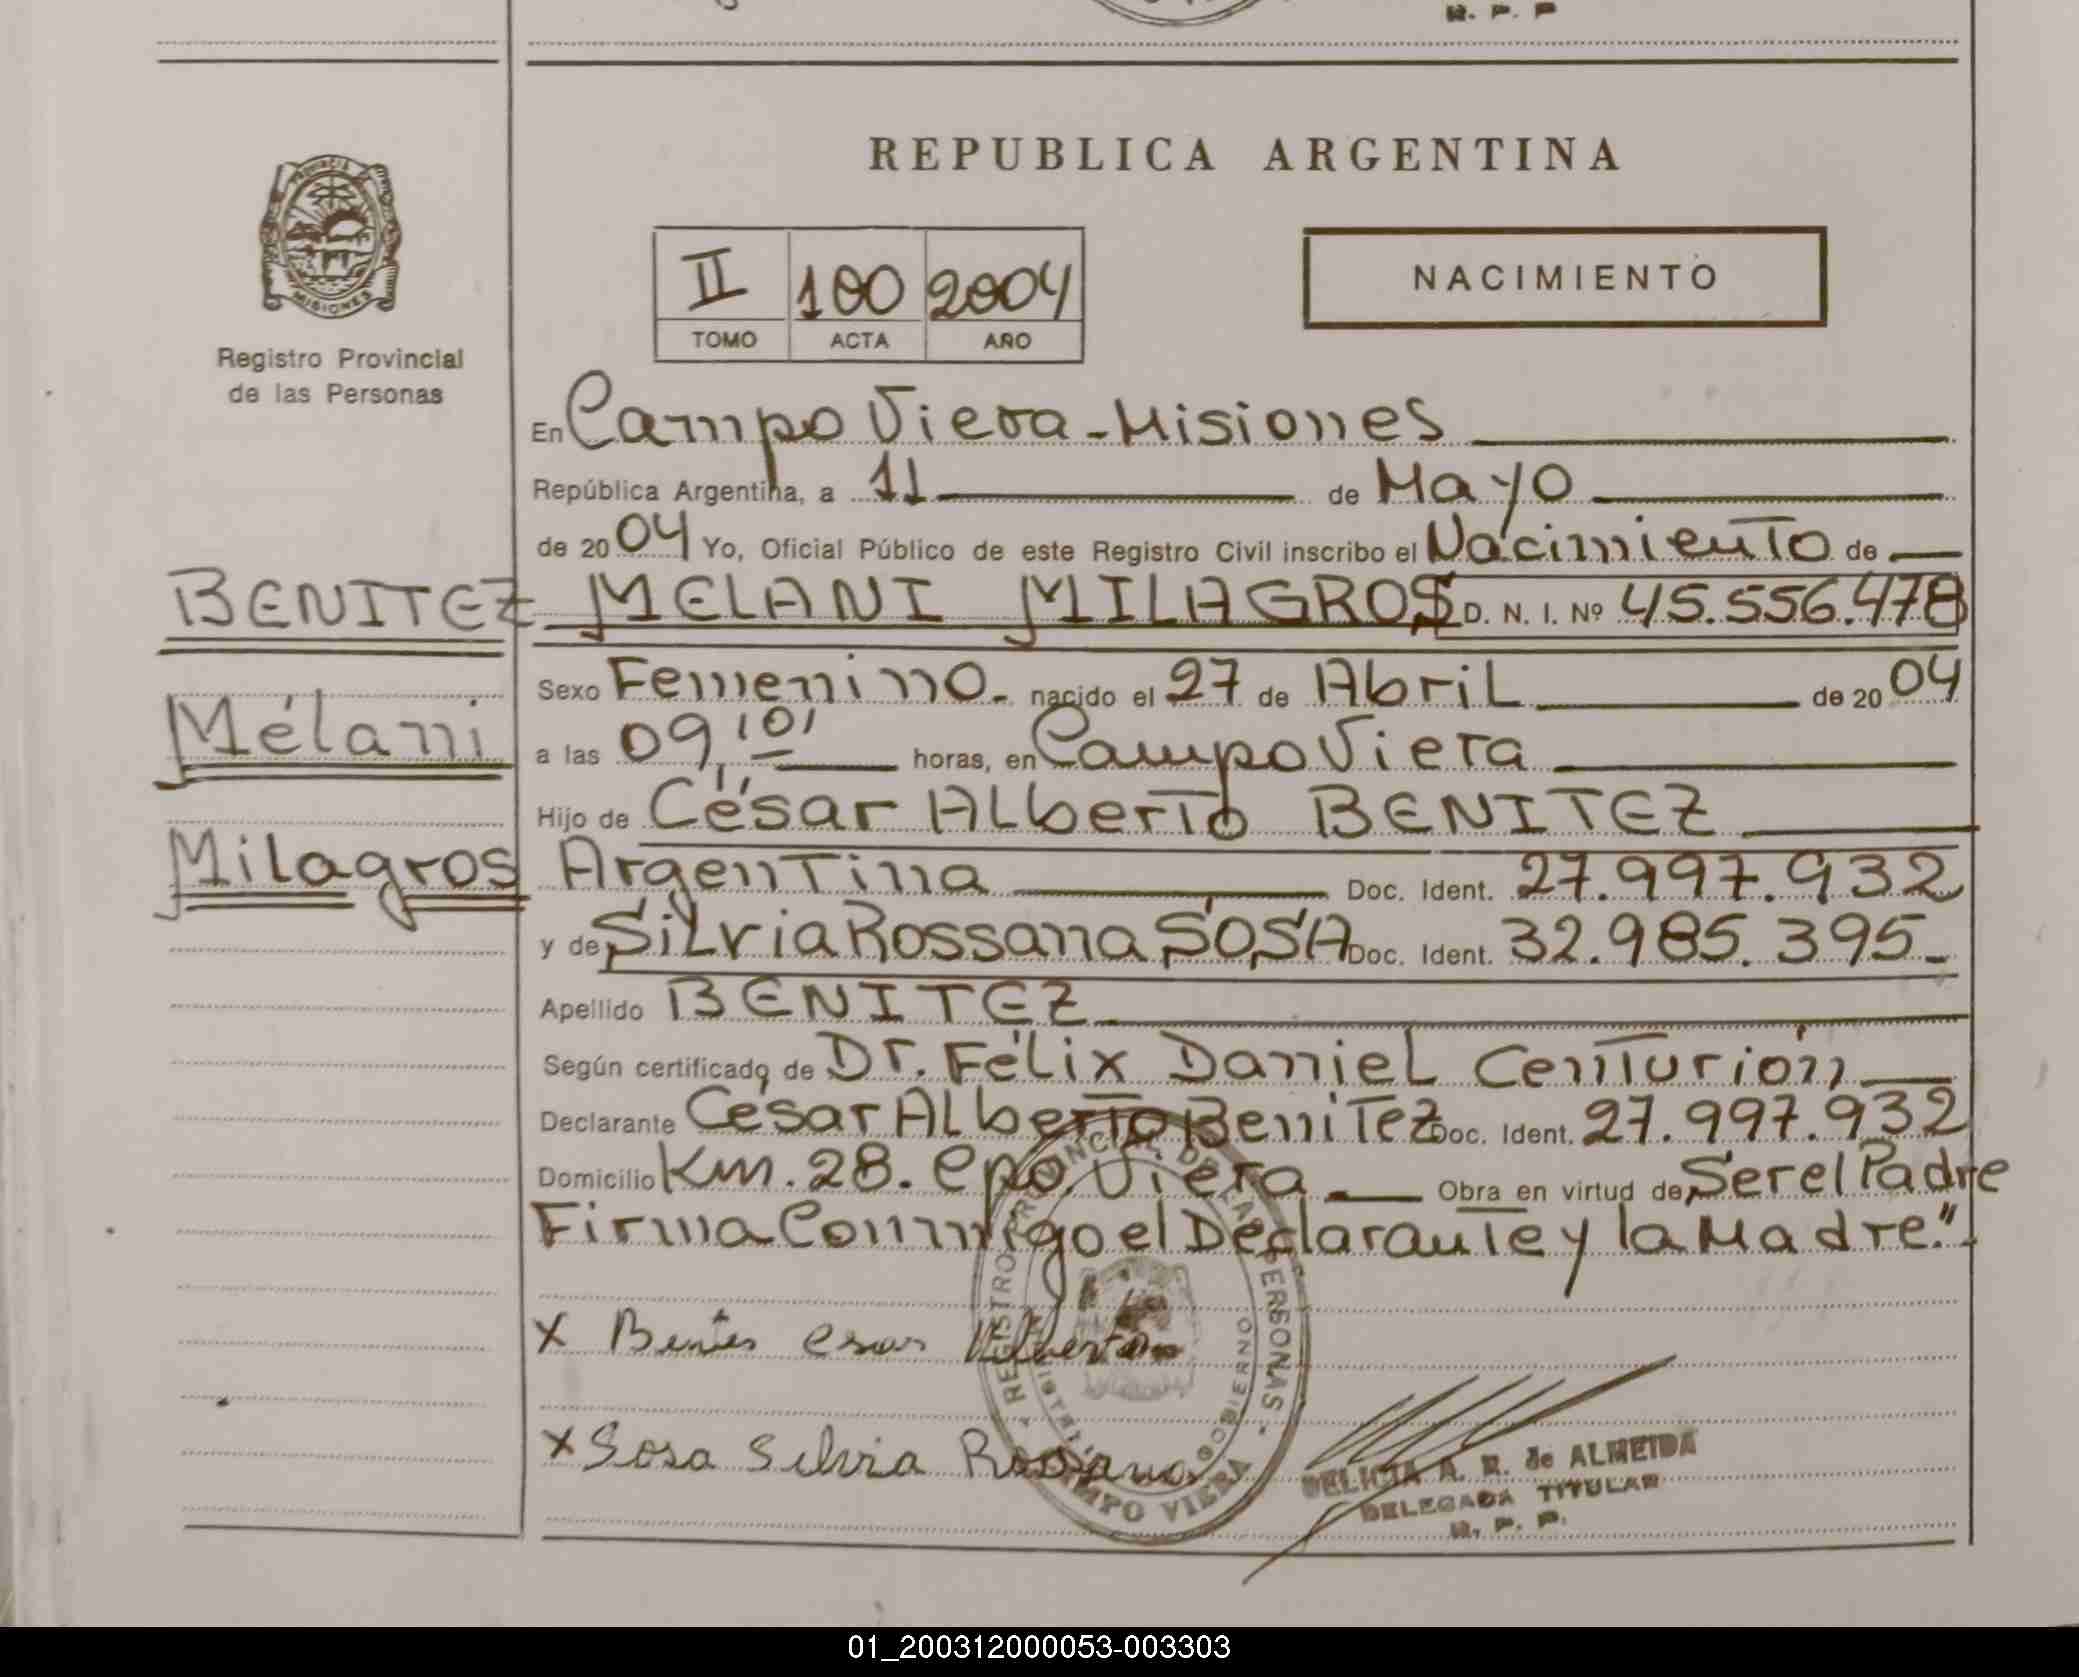 R. P. P.
REPUBLICA ARGENTINA
PROVINCIA DE
MISIONES
Registro Provincial
de las Personas
II 100 2004
TOMO ACTA AÑO
NACIMIENTO
En Campo Viera - Misiones
República Argentina, a 11 de Mayo
de 2004 Yo, Oficial Público de este Registro Civil inscribo el Nacimiento de
BENITEZ
Mélani
Milagros
MELANI MILAGROS D. N. I. Nº 45.556.478
Sexo Femenino. nacido el 27 de Abril de 2004
a las 09, horas, en Campo Viera
Hijo de César Alberto BENITEZ
Argentina Doc. Ident. 27.997.932
y de Silvia Rossana SOSA Doc. Ident. 32.985.395.
Apellido BENITEZ
Según certificado de Dr. Félix Daniel Centurión
Declarante César Alberto Benitez Doc. Ident. 27.997.932
Domicilio Km. 28. Cpo. Viera Obra en virtud de Ser el Padre
Firma Conmigo el Declarante y la Madre."
REGISTRO PROVINCIAL DE LAS PERSONAS
GOBIERNO
CAMPO VIERA
X Alberto
X Sosa Silvia Rossana
DELICIA A. R. de ALMEIDA
DELEGADA TITULAR
R. P. P.
01_200312000053-003303